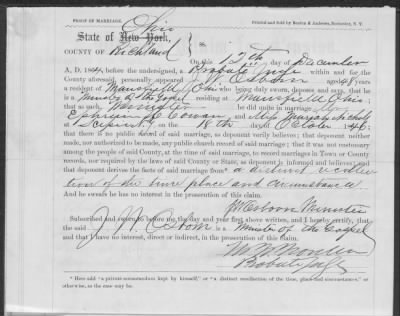 PROOF OF MARRIAGE.
Printed and Sold by
Ohio
State of New York,
COUNTY OF Richland ss.
On this 13th day of December
A. D. 18 before the undersigned, a Probate Judge within and for the
County aforesaid, personally appeared J. W. Osborn aged 48 years
a resident of Mansfield Ohio who being duly sworn, deposes and says, that he
is a Minister of the Gospel residing at Mansfield Ohio
that as such Minister he did unite in marriage
Ephraim C Cowan and Miss
at on the 18th day October
that there is no public record of said marriage, as deponent verily believes; that deponent neither
made, nor authorized to be made, any public church record of said marriage; that it was not customary
among the people of said County, at the time of said marriage, to record marriages in Town or County
records, nor required by the laws of said County or State, as deponent is informed and believes; and
that deponent derives the facts of said marriage from* a distinct recollec
tion of the time place and circumstance.
And he swears he has no interest in the prosecution of this claim.
J W Osborn Minister
Subscribed and sworn to before me the day and year first above written, and I hereby certify, that
the said J. W. Osborn is a Minister of the Gospel
and that I have no interest, direct or indirect, in the prosecution of this claim.
Probate Judge
* Here add "a private memorandum kept by himself," or "a distinct recollection of the time, place and circumstance," or
otherwise, as the case may be.